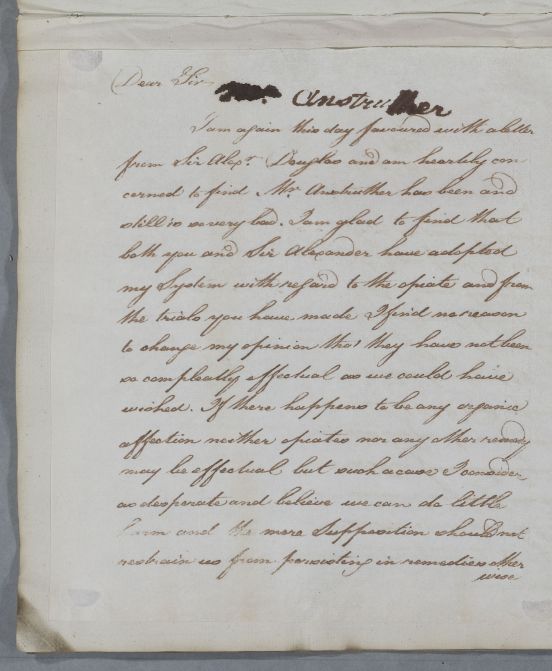 Dear Sir
Anstruther
I am again this day favoured with a letter
from Sir Alexr. Douglas and am heartily con
cerned to find Mr. Anstruther has been and
still is so very bad. I am glad to find that
both you and Sir Alexander have adopted
my System with regard to the opiate and from
the trials you have made I find no reason
to change my opinion tho' they have not been
so compleatly effectual as we could have
wished. If there happens to be any organic
affection neither opiates nor any other remedy
may be effectual but such a case I consider
as desperate and believe we can do little
harm and the mere Supposition should not
restrain us from persisting in remedies other
wise